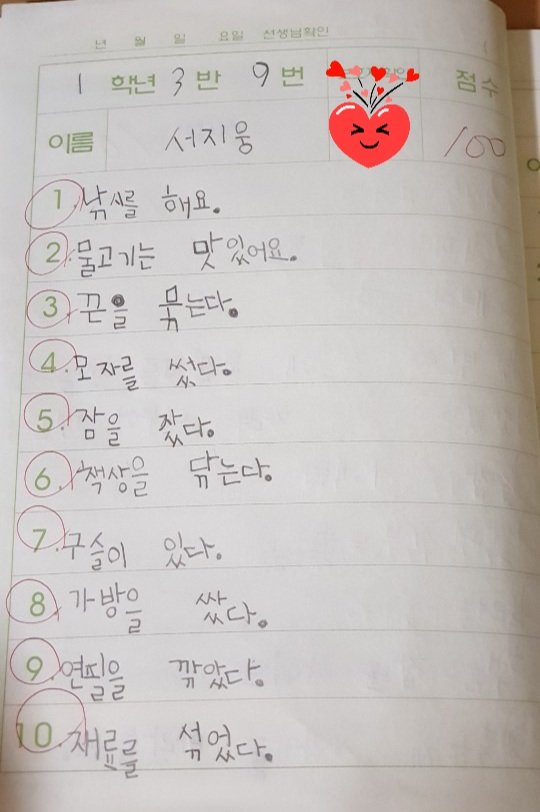 년 월 일 요일 선생님확인
1 학년 3 반 9 번 점수
이름 서지웅 100
1. 낚시를 해요.
2. 물고기는 맛있어요.
3. 끈을 묶는다.
4. 모자를 썼다.
5. 잠을 잤다.
6. 책상을 닦는다.
7. 구슬이 있다.
8. 가방을 쌌다.
9. 연필을 깎았다.
10. 재료를 섞었다.